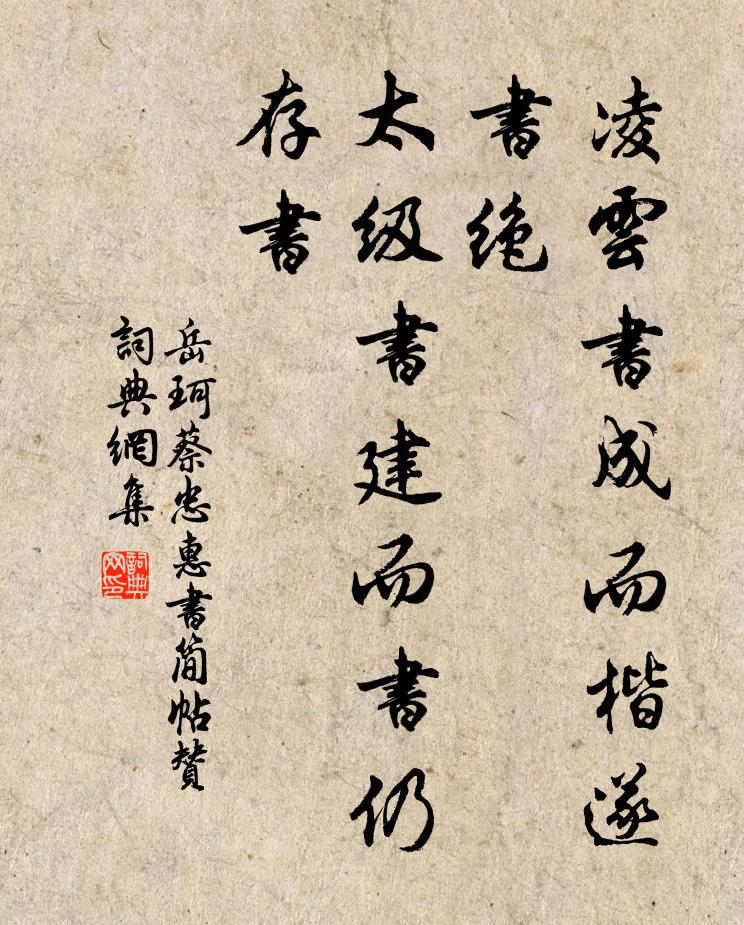 凌雲書成而楷遂
書绝
太级書建而書仍
存書
岳珂蔡忠惠書简帖贊
詞典網集
詞典网印